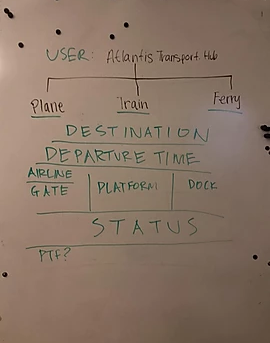 USER: Atlantis Transport. Hub
Plane Train Ferry
DESTINATION
DEPARTURE TIME
AIRLINE
GATE PLATFORM DOCK
STATUS
PTF?